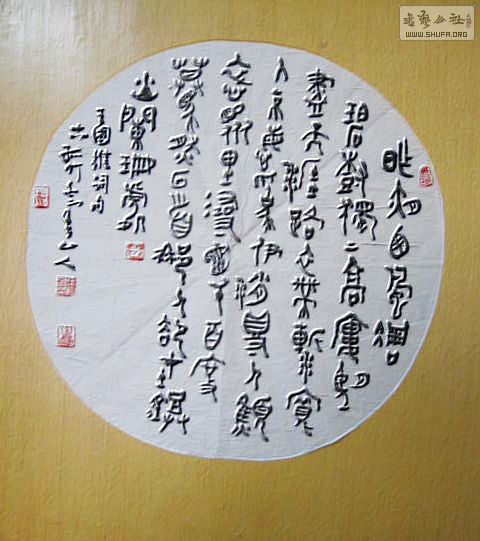 昨夜西風凋
碧樹獨上高樓望
盡天涯路衣帶漸寬
終不悔為伊消得人憔
悴眾里尋他千百度
驀然回首那人卻在燈
火闌珊處
王國維詞句
書藝公社
WWW.SHUFA.ORG